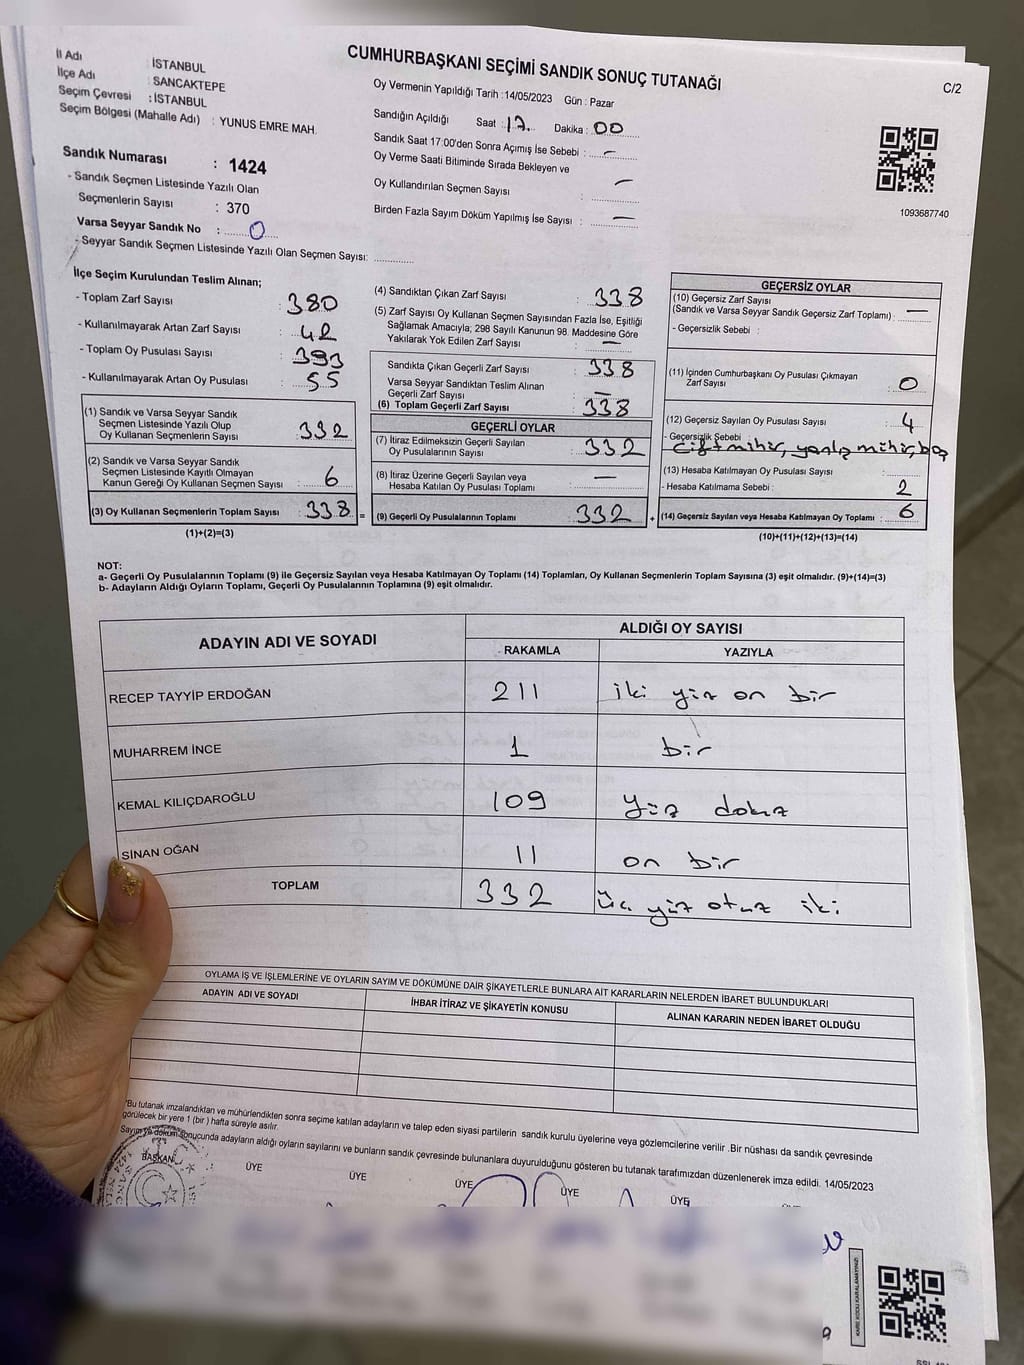 CUMHURBAŞKANI SEÇİMİ SANDIK SONUÇ TUTANAĞI
C/2
İl Adı : İSTANBUL
İlçe Adı : SANCAKTEPE
Seçim Çevresi : İSTANBUL
Seçim Bölgesi (Mahalle Adı) : YUNUS EMRE MAH.
Sandık Numarası : 1424
- Sandık Seçmen Listesinde Yazılı Olan
Seçmenlerin Sayısı : 370
Varsa Seyyar Sandık No : 0
- Seyyar Sandık Seçmen Listesinde Yazılı Olan Seçmen Sayısı:
Oy Vermenin Yapıldığı Tarih :14/05/2023 Gün : Pazar
Sandığın Açıldığı Saat : 17. Dakika : 00
Sandık Saat 17:00'den Sonra Açımış İse Sebebi : -
Oy Verme Saati Bitiminde Sırada Bekleyen ve
Oy Kullandırılan Seçmen Sayısı : -
Birden Fazla Sayım Döküm Yapılmış İse Sayısı : -
1093687740
İlçe Seçim Kurulundan Teslim Alınan;
- Toplam Zarf Sayısı : 380
- Kullanılmayarak Artan Zarf Sayısı : 42
- Toplam Oy Pusulası Sayısı : 393
- Kullanılmayarak Artan Oy Pusulası : 55
(1) Sandık ve Varsa Seyyar Sandık
Seçmen Listesinde Yazılı Olup
Oy Kullanan Seçmenlerin Sayısı : 332
(2) Sandık ve Varsa Seyyar Sandık
Seçmen Listesinde Kayıtlı Olmayan
Kanun Gereği Oy Kullanan Seçmen Sayısı : 6
(3) Oy Kullanan Seçmenlerin Toplam Sayısı : 338 =
(1)+(2)=(3)
(4) Sandıktan Çıkan Zarf Sayısı : 338
(5) Zarf Sayısı Oy Kullanan Seçmen Sayısından Fazla İse, Eşitliği
Sağlamak Amacıyla; 298 Sayılı Kanunun 98. Maddesine Göre
Yakılarak Yok Edilen Zarf Sayısı : -
Sandıkta Çıkan Geçerli Zarf Sayısı : 338
Varsa Seyyar Sandıktan Teslim Alınan
Geçerli Zarf Sayısı : -
(6) Toplam Geçerli Zarf Sayısı : 338
GEÇERLİ OYLAR
(7) İtiraz Edilmeksizin Geçerli Sayılan
Oy Pusulalarının Sayısı : 332
(8) İtiraz Üzerine Geçerli Sayılan veya
Hesaba Katılan Oy Pusulası Toplamı : -
(9) Geçerli Oy Pusulalarının Toplamı : 332 +
GEÇERSİZ OYLAR
(10) Geçersiz Zarf Sayısı
(Sandık ve Varsa Seyyar Sandık Geçersiz Zarf Toplamı) : -
- Geçersizlik Sebebi :
(11) İçinden Cumhurbaşkanı Oy Pusulası Çıkmayan
Zarf Sayısı : 0
(12) Geçersiz Sayılan Oy Pusulası Sayısı : 4
- Geçersizlik Sebebi
Çift mühür, yanlış mühür, boş
(13) Hesaba Katılmayan Oy Pusulası Sayısı :
- Hesaba Katılmama Sebebi : 2
(14) Geçersiz Sayılan veya Hesaba Katılmayan Oy Toplamı : 6
(10)+(11)+(12)+(13)=(14)
NOT:
a- Geçerli Oy Pusulalarının Toplamı (9) ile Geçersiz Sayılan veya Hesaba Katılmayan Oy Toplamı (14) Toplamları, Oy Kullanan Seçmenlerin Toplam Sayısına (3) eşit olmalıdır. (9)+(14)=(3)
b- Adayların Aldığı Oyların Toplamı, Geçerli Oy Pusulalarının Toplamına (9) eşit olmalıdır.
ADAYIN ADI VE SOYADI ALDIĞI OY SAYISI
RAKAMLA YAZIYLA
RECEP TAYYİP ERDOĞAN 211 iki yüz on bir
MUHARREM İNCE 1 bir
KEMAL KILIÇDAROĞLU 109 yüz dokuz
SİNAN OĞAN 11 on bir
TOPLAM 332 üç yüz otuz iki
OYLAMA İŞ VE İŞLEMLERİNE VE OYLARIN SAYIM VE DÖKÜMÜNE DAİR ŞİKAYETLERLE BUNLARA AİT KARARLARIN NELERDEN İBARET BULUNDUKLARI
ADAYIN ADI VE SOYADI İHBAR İTİRAZ VE ŞİKAYETİN KONUSU ALINAN KARARIN NEDEN İBARET OLDUĞU
*Bu tutanak imzalandıktan ve mühürlendikten sonra seçime katılan adayların ve talep eden siyasi partilerin sandık kurulu üyelerine veya gözlemcilerine verilir .Bir nüshası da sandık çevresinde
görülecek bir yere 1 (bir ) hafta süreyle asılır.
Sayım ve döküm sonucunda adayların aldığı oyların sayılarını ve bunların sandık çevresinde bulunanlara duyurulduğunu gösteren bu tutanak tarafımızdan düzenlenerek imza edildi. 14/05/2023
BAŞKAN ÜYE ÜYE ÜYE ÜYE ÜYE
KARE KODU KARALAMAYINIZ!